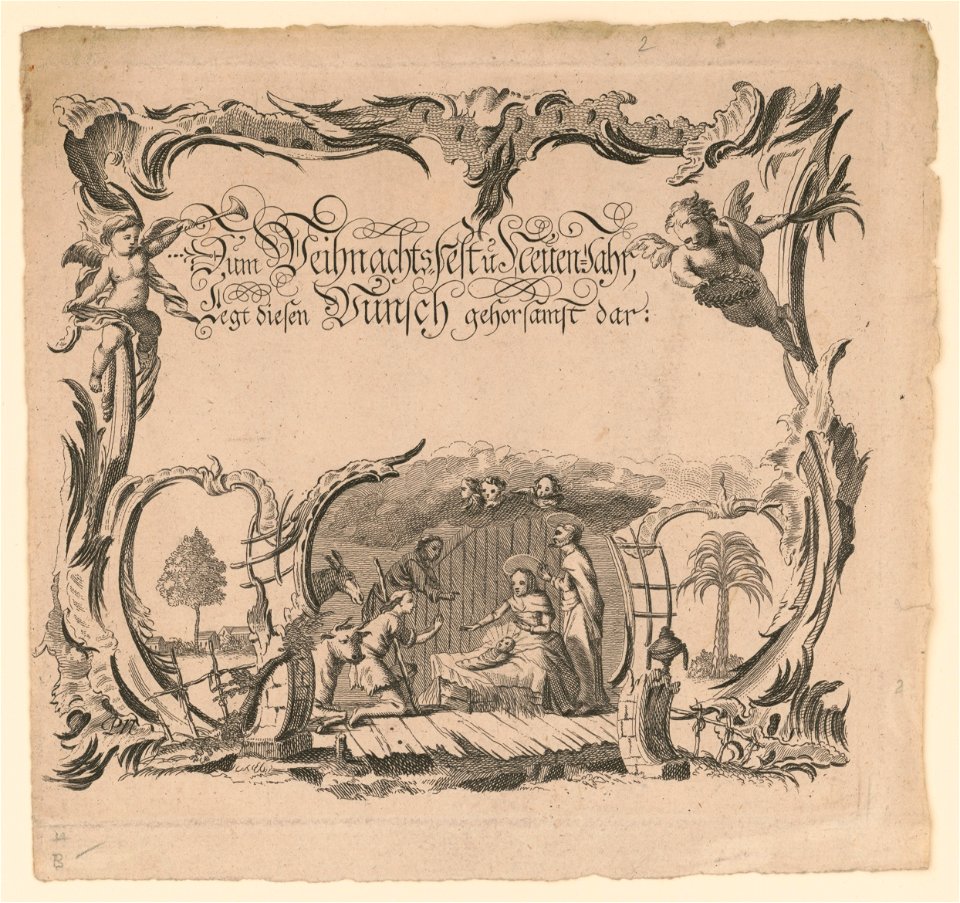 2
Zum Weihnachts=Fest u Neuen=Jahr,
Legt diesen Wunsch gehorsamst dar:
2
B